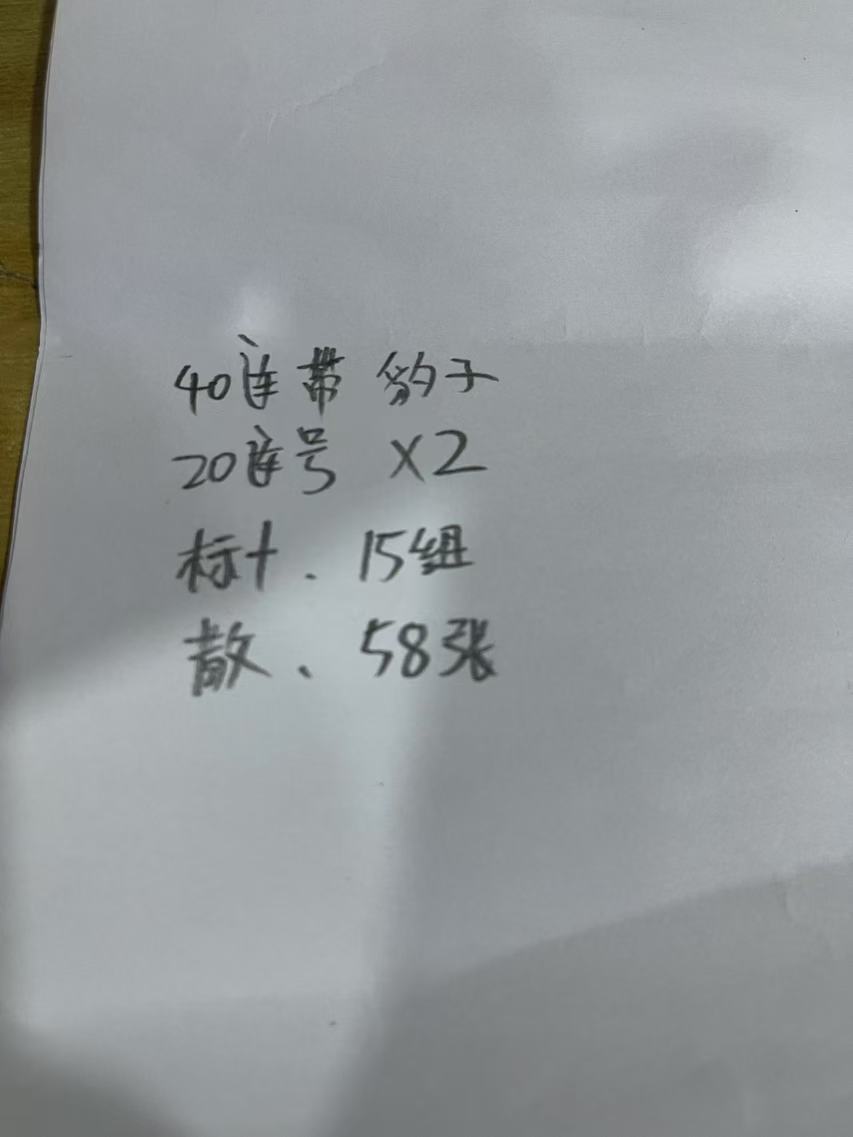 40连带 豹子
20连号 X2
标十、15组
散、58张